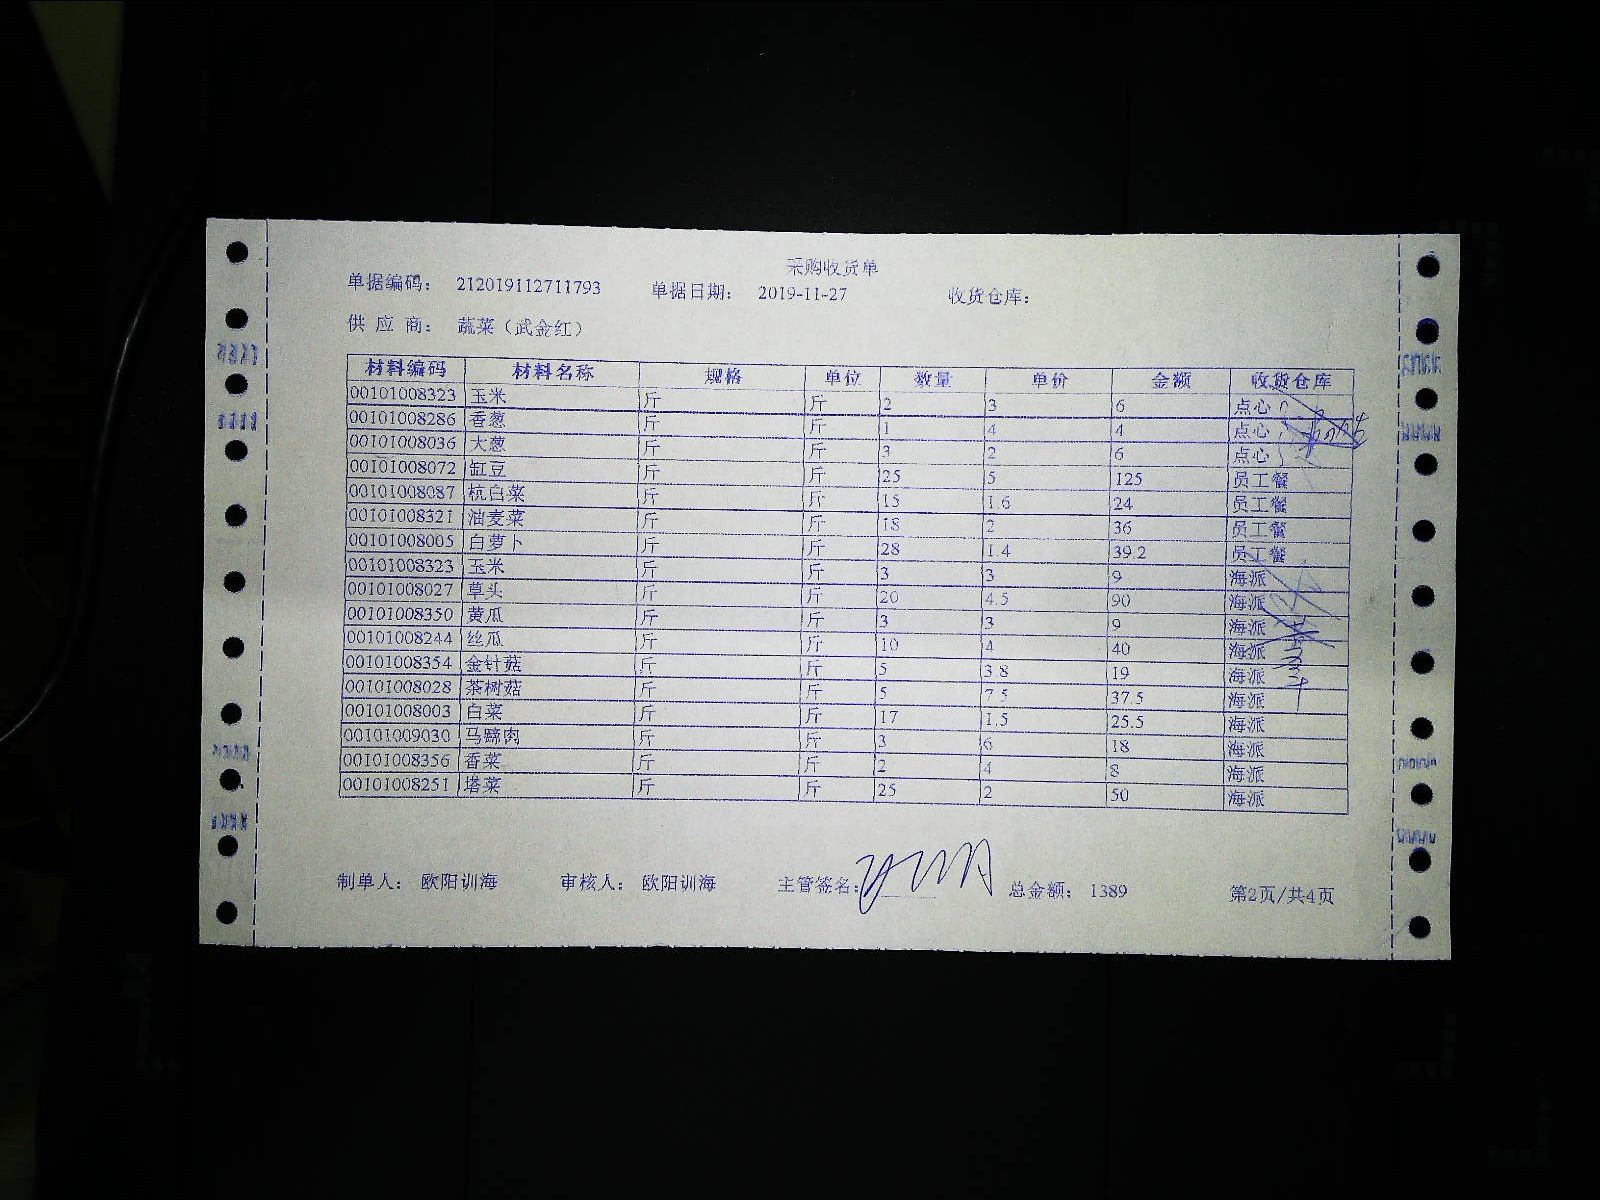 采购收货单
单据编码： 212019112711793 单据日期： 2019-11-27 收货仓库：
供 应 商： 蔬菜（武金红）
材料编码 材料名称 规格 单位 数量 单价 金额 收货仓库
00101008323 玉米 斤 斤 2 3 6 点心
00101008286 香葱 斤 斤 1 4 4 点心
00101008036 大葱 斤 斤 3 2 6 点心
00101008072 缸豆 斤 斤 25 5 125 员工餐
00101008087 杭白菜 斤 斤 15 1.6 24 员工餐
00101008321 油麦菜 斤 斤 18 2 36 员工餐
00101008005 白萝卜 斤 斤 28 1.4 39.2 员工餐
00101008323 玉米 斤 斤 3 3 9 海派
00101008027 草头 斤 斤 20 4.5 90 海派
00101008350 黄瓜 斤 斤 3 3 9 海派
00101008244 丝瓜 斤 斤 10 4 40 海派
00101008354 金针菇 斤 斤 5 3.8 19 海派
00101008028 茶树菇 斤 斤 5 7.5 37.5 海派
00101008003 白菜 斤 斤 17 1.5 25.5 海派
00101009030 马蹄肉 斤 斤 3 6 18 海派
00101008356 香菜 斤 斤 2 4 8 海派
00101008251 塔菜 斤 斤 25 2 50 海派
制单人： 欧阳训海 审核人： 欧阳训海 主管签名： 总金额： 1389 第2页/共4页